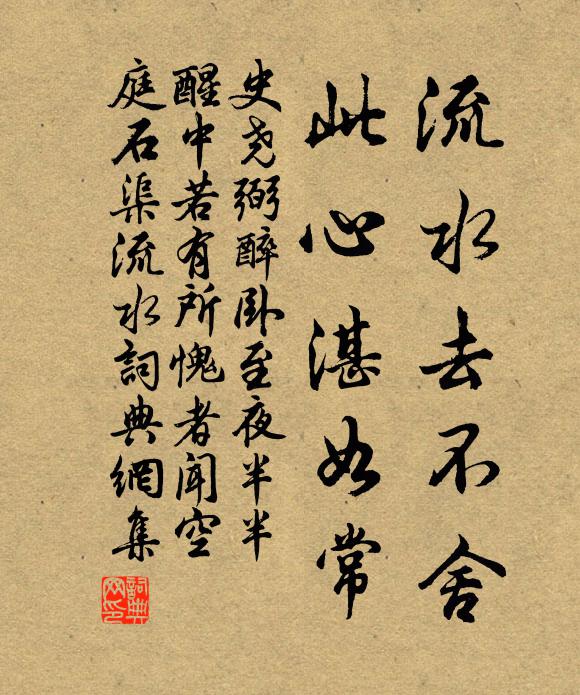 流水去不舍
此心湛如常
史堯弼醉卧至夜半半
醒中若有所愧者聞空
庭石渠流水詞典網集
詞典网印